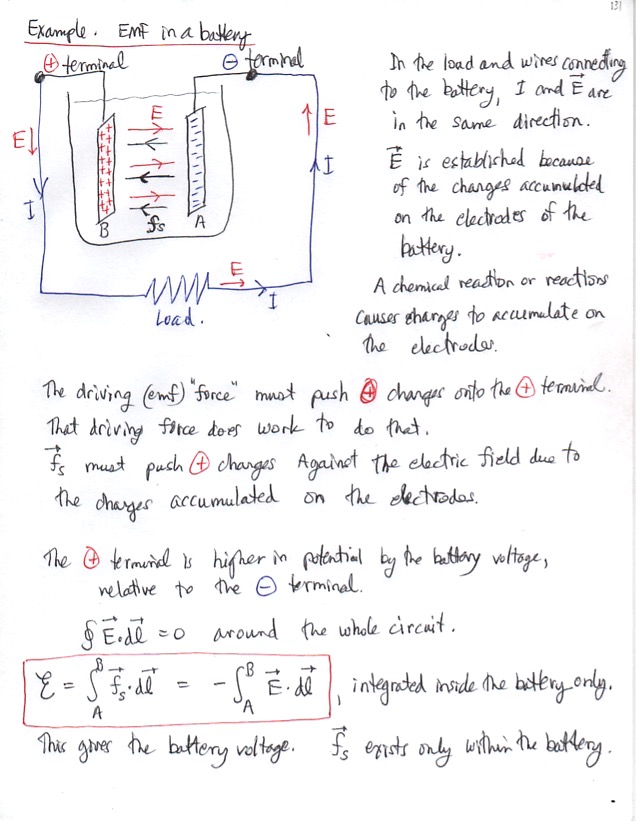 131
Example. EMF in a battery
⊕ terminal
⊖ terminal
E
E
E
I
I
+ + + + + + + + + + + + + + + +
- - - - - - - - - -
B
fs
A
E
I
Load.
In the load and wires connecting
to the battery, I and E⃗ are
in the same direction.
E⃗ is established because
of the charges accumulated
on the electrodes of the
battery.
A chemical reaction or reactions
causes charges to accumulate on
the electrodes.
The driving (emf) "force" must push ⊕ charges onto the ⊕ terminal.
That driving force does work to do that.
f⃗s must push ⊕ charges Against the electric field due to
the charges accumulated on the electrodes.
The ⊕ terminal is higher in potential by the battery voltage,
relative to the ⊖ terminal.
∮ E⃗·dl⃗ = 0 around the whole circuit.
ℰ = ∫_A^B f⃗s·dl⃗ = -∫_A^B E⃗·dl⃗, integrated inside the battery only.
This gives the battery voltage. f⃗s exists only within the battery.